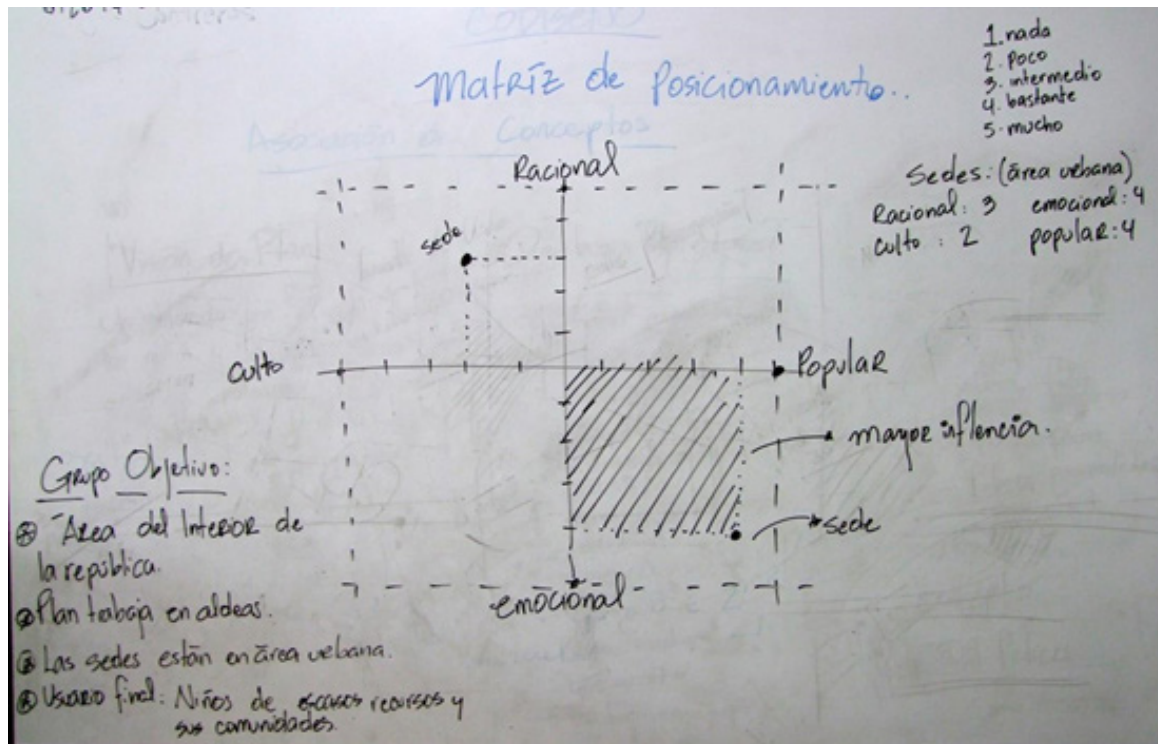 Matrīz de Posicionamiento..
Asociación de Conceptos
1. nada
2. poco
3. intermedio
4. bastante
5. mucho
Sedes: (área urbana)
Racional: 3 emocional: 4
culto : 2 popular: 4
Racional
sede
culto
Popular
mayor inflencia.
sede
emocional
Grupo Objetivo:
Área del Interior de
la república.
Plan trabaja en aldeas.
Las sedes están en área urbana.
Usuario final: Niños de escasos recursos y
sus comunidades.